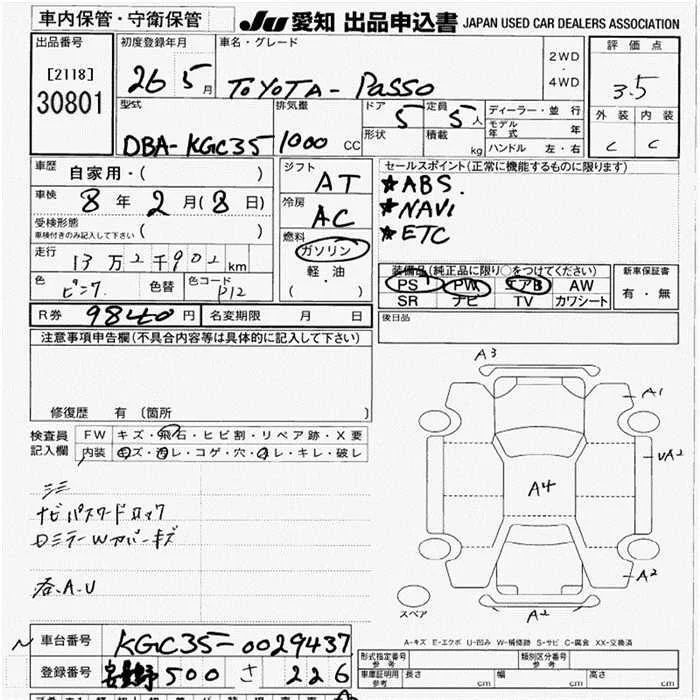 車内保管・守衛保管
JU 愛知 出品申込書 JAPAN USED CAR DEALERS ASSOCIATION
出品番号
[2118]
30801
初度登録年月
26 5月
車名・グレード
TOYOTA - Passo
2WD
・
4WD
評価点
3.5
外装 内装
C C
型式
DBA-KGC35
排気量
1000 CC
ドア
5
形状
定員
5人
積載
kg
ディーラー・並行
モデル年式 年
ハンドル 左・右
車歴 自家用・( )
車検 8年 2月(8日)
受検形態
車検付きのみ記入して下さい ( )
走行 13万2千902km
色 ピンク 色替 色コード P12
シフト
AT
冷房
AC
燃料
ガソリン
軽・油
( )
セールスポイント(正常に機能するものに限ります)
★ABS.
★NAVI
★ETC
装備品(純正品に限り○をつけてください)
PS PW エアB AW
SR ナビ TV カワシート
新車保証書
有・無
R券 9840円 名変期限 月 日
後日品
注意事項申告欄(不具合内容等は具体的に記入して下さい)
修復歴 有(箇所 )
検査員
記入欄
FW キズ・飛石・ヒビ割・リペア跡・X要
内装 キズ・汚レ・コゲ・穴・スレ・キレ・破レ
ミミ
ナビパスワードロック
Dミラーwカバーキズ
各.A.U
A3
A1
UA2
A4
A2
A2
スペア
A-キズ E-エクボ U-凹み W-補修跡 S-サビ C-腐食 XX-交換済
車台番号 KGC35-0029437
登録番号 500 さ 226
形式指定番号
参考
類別区分番号
参考
車庫証明用
参考
長さ cm 幅 cm 高さ cm